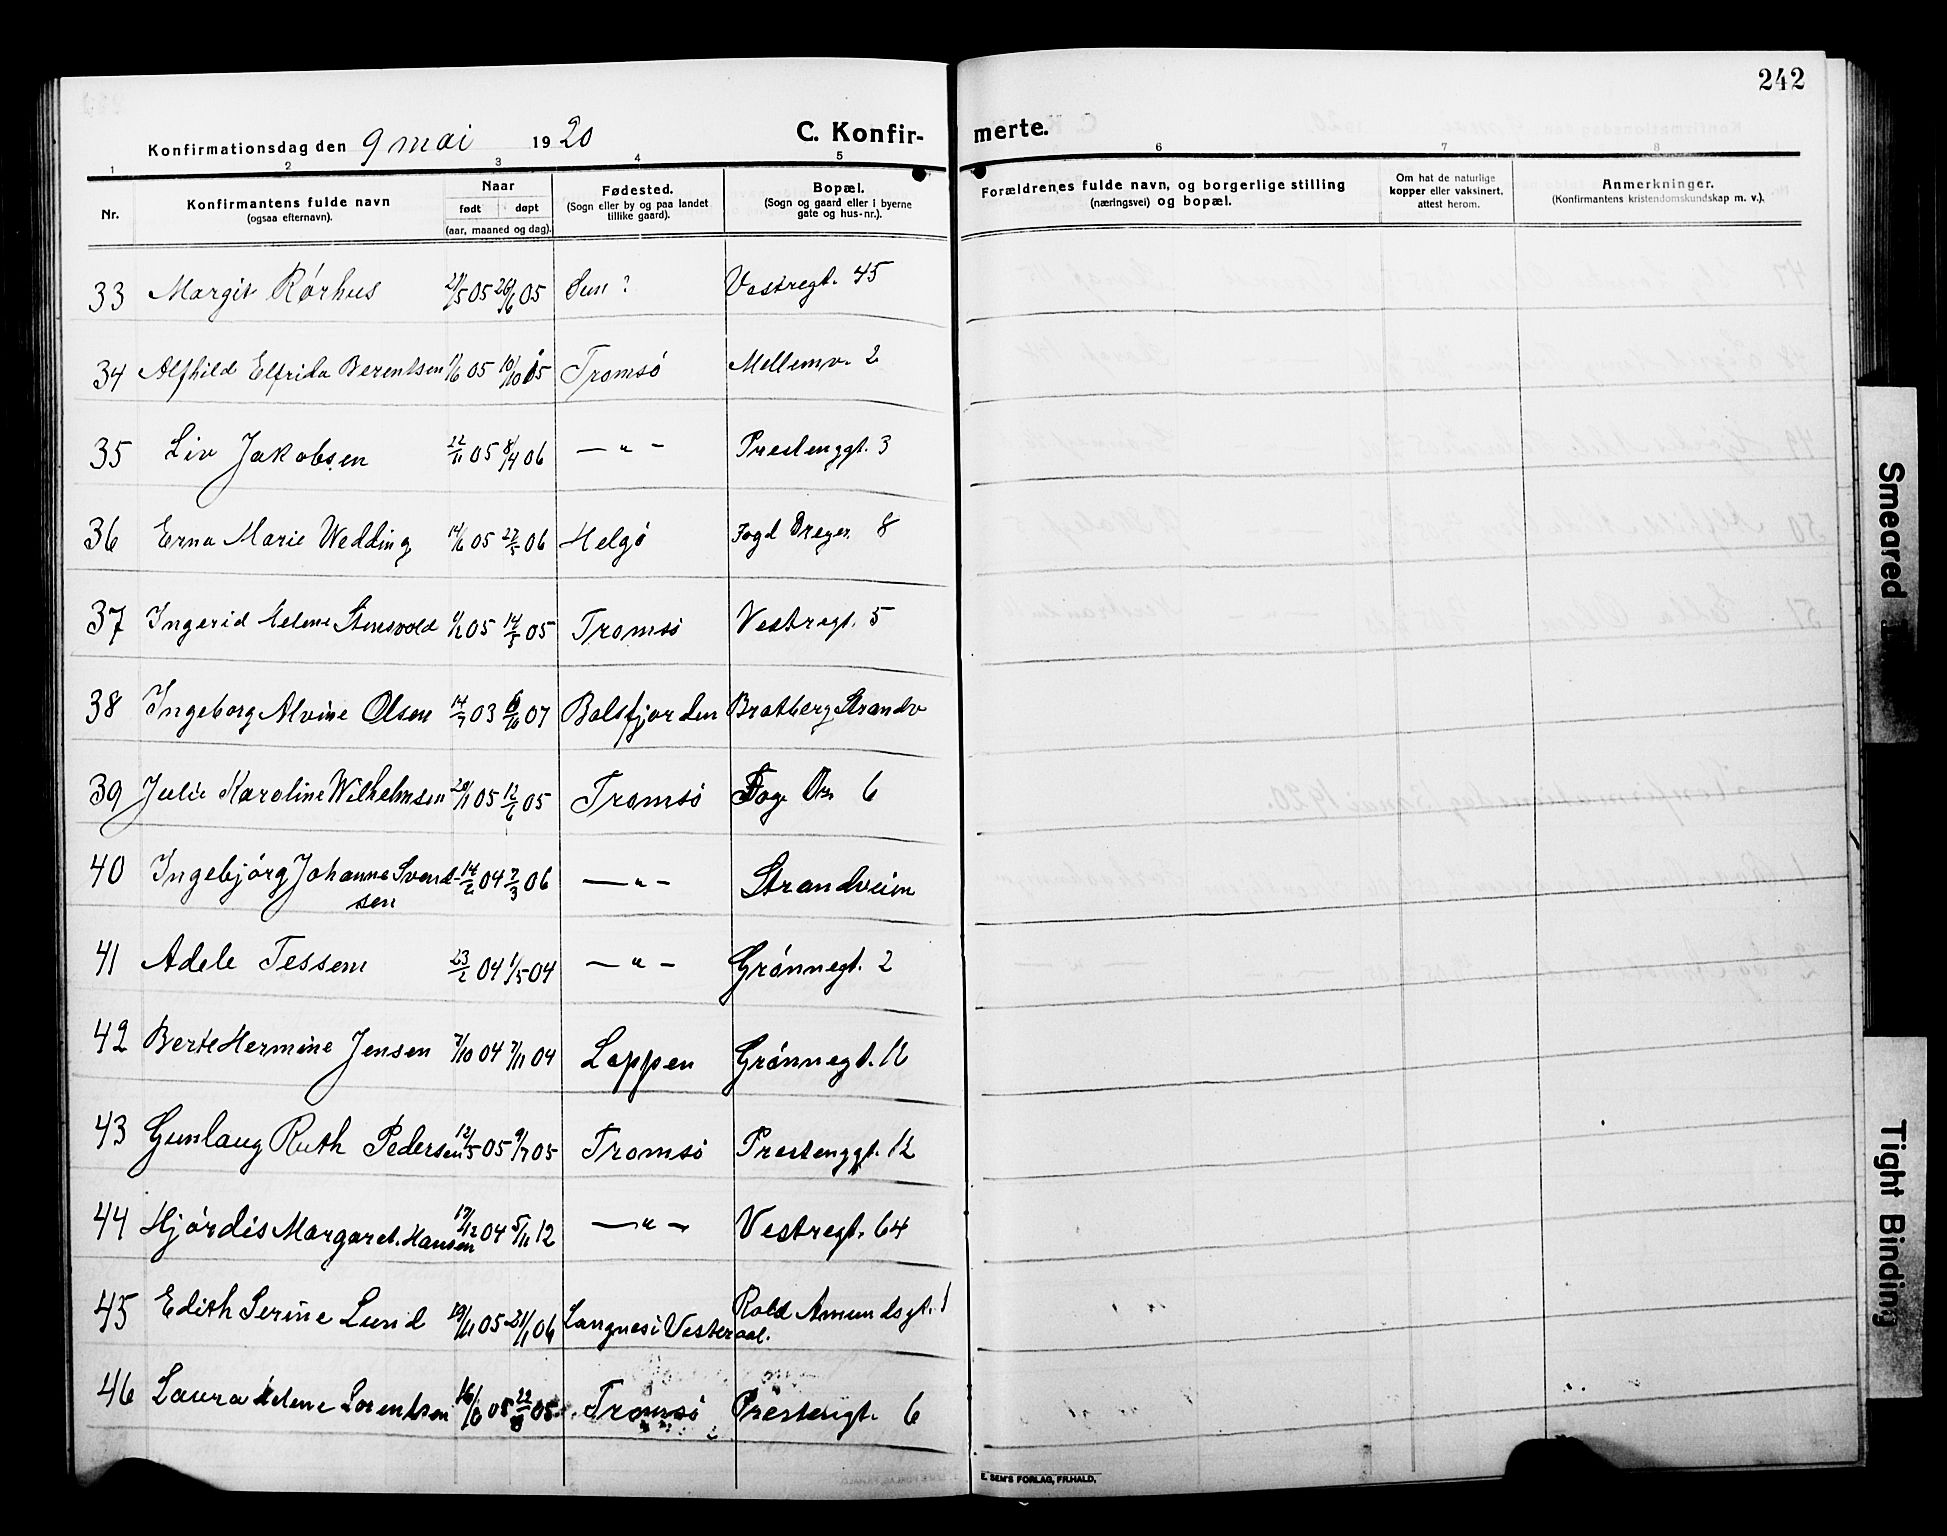 242
Konfirmationsdag den 9 mai 1920
C. Konfir-merte.
1 2 3 4 5 6 7 8
Nr.
Konfirmantens fulde navn
(ogsaa efternavn).
Naar
født døpt
(aar, maaned og dag).
Fødested.
(Sogn eller by og paa landet
tillike gaard).
Bopæl.
(Sogn og gaard eller i byerne
gate og hus-nr.).
Forældrenes fulde navn, og borgerlige stilling
(næringsvei) og bopæl.
Om hat de naturlige
kopper eller vaksinert.
attest herom.
Anmerkninger.
(Konfirmantens kristendomskundskap m. v.).
33 Margit Rørhus 05 05 ? Vestregt. 45
34 Alfhild Elfrida Berentsen 05 10/10 05 Tromsø Mellemv. 2
35 Liv Jakobsen 22/11 05 8/4 06 — " — Prestenggt. 3
36 Erna Marie Wedding 14/6 05 27/5 06 Helgø Fogd Dreyer. 8
37 Ingerid Helene Stensvold 05 14/5 05 Tromsø Vestregt. 5
38 Ingeborg Alvine Olsen 14/7 03 07 Balsfjorden Bratberg Strandv
39 Julie Karoline Wilhelmsen 05 12/6 05 Tromsø Fog. Dr. 6
40 Ingebjørg Johanne Svend-
sen 14/6 04 7/3 06 — " — Strandveien
41 Adele Tessem 23/2 04 1/5 04 — " — Grønnegt. 2
42 Berte Hermine Jensen 7/10 04 7/11 04 Loppen Grønnegt.
43 Gunlaug Ruth Pedersen 12/5 05 9/7 05 Tromsø Prestenggt. 12
44 Hjørdis Margaret. Hansen 04 5/11 12 — " — Vestregt. 64
45 Edith Serine Lund 05 06 Langnes i Vesteraal. Roald Amundsgt. 1
46 Laura Helene Lorentsen 05 05 Tromsø 6
E. SEM'S FORLAG, FR.HALD,
Smeared
Tight Binding